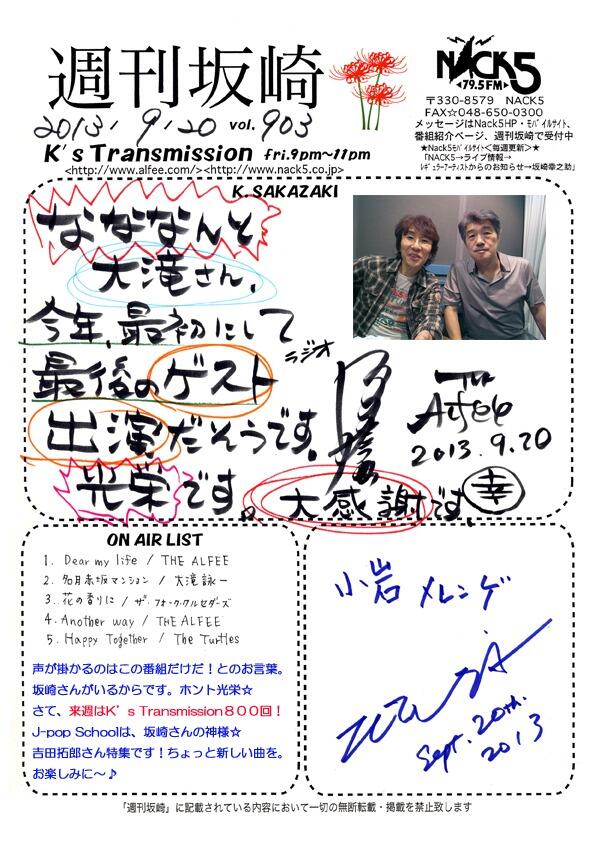 週刊坂崎
NACK5
79.5FM
〒330-8579 NACK5
FAX☆048-650-0300
メッセージはNack5HP・モバイルサイト、
番組紹介ページ、週刊坂崎で受付中
★Nack5モバイルサイト<毎週更新>★
「NACK5→ライブ情報→
レギュラーアーティストからのお知らせ→坂崎幸之助」
2013, 9.20 vol. 903
K's Transmission fri.9pm~11pm
<http://www.alfee.com/><http://www.nack5.co.jp>
K.SAKAZAKI
なななんと
大滝さん、
今年、最初にして
最後のラジオゲスト
出演だそうです。
光栄です。大感謝です、幸
The Alfee
2013.9.20
ON AIR LIST
1. Dear my life / THE ALFEE
2. 多目赤坂マンション / 大滝詠一
3. 花の香りに / ザ・フォーク・クルセダーズ
4. Another way / THE ALFEE
5. Happy Together / The Turtles
声が掛かるのはこの番組だけだ！とのお言葉。
坂崎さんがいるからです。ホント光栄☆
さて、来週はK's Transmission８００回！
J-pop Schoolは、坂崎さんの神様☆
吉田拓郎さん特集です！ちょっと新しい曲を。
お楽しみに～♪
小岩 メレンゲ
Sept. 20th.
2013
「週刊坂崎」に記載されている内容において一切の無断転載・掲載を禁止致します